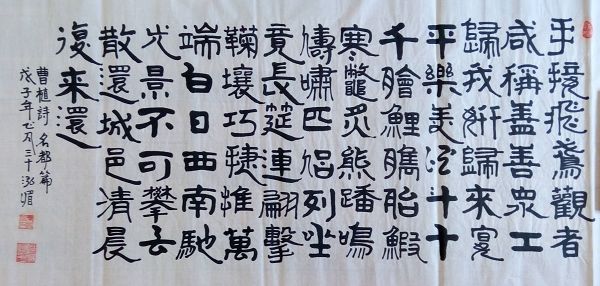 手接飛鳶觀者
咸稱盖善眾工
歸我妍歸來宴
平樂美酒斗十
千膾鯉臇胎鰕
寒鼈炙熊蹯鳴
儔嘯匹侶列坐
竟長筵連翩擊
鞠壤巧捷惟萬
端白日西南馳
光景不可攀云
散還城邑清晨
復来還
曹植詩 名都篇
戊子年七月三十